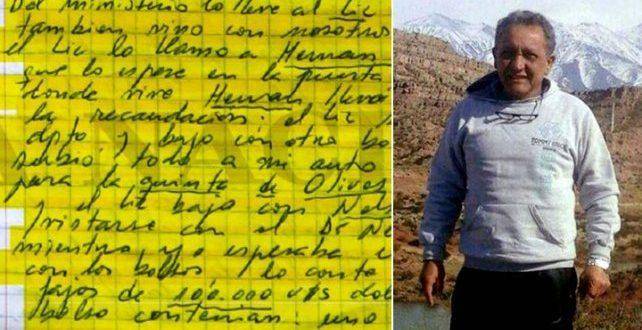 Del ministerio lo lleve al Lic
tambien vino con nosotros
el Lic lo llamo a Hernan
que lo espere en la puerta
donde Hernan
la recaudacion: el Lic
dpto y bajo con otro bo
subio todo a mi auto
para la quinta de Olivos
y el Lic bajo con Nel
con el Dr Ne
mientra yo esperaba e
con los bolsos / lo conta
fajos de 100.000 dol
bolso contenian: uno